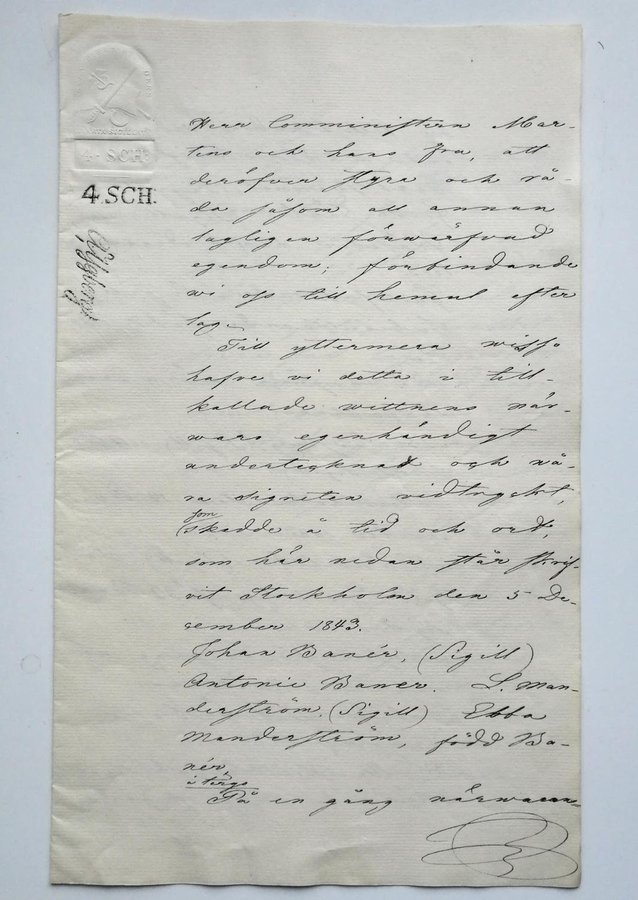 4. SCH:
4. SCH.
Herr Comministern Mar-
tens och hans fru, att
deröfver styra och rå-
da såsom all annan
lagligen förwärfvad
egendom; förbindande
wi oss till hemul efter
lag.
Till yttermera wisso
hafve vi detta i till-
kallade wittnens när-
waro egenhändigt
undertecknat och wå-
ra signeten vidtryckt,
som
skedde å tid och ort,
som här nedan står skrif-
vit Stockholm den 5 De-
cember 1843.
Johan Banér, (Sigill)
Antonie Baner. L. Man-
derström. (Sigill) Ebba
Manderström, född Ba-
nér.
à tergo
På en gång närwaran-